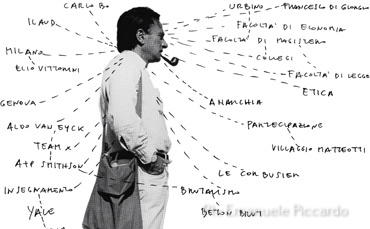 CARLO BO
URBINO
FRANCESCO DI GIORGIO
ILAUD
FACOLTÀ DI ECONOMIA
FACOLTÀ DI MAGISTERO
MILANO
COLLEGI
ELIO VITTORINI
FACOLTA' DI LEGGE
ETICA
GENOVA
ANARCHIA
ALDO VAN EYCK
PARTECIPAZIONE
TEAM X
VILLAGGIO MATTEOTTI
A+P SMITHSON
LE CORBUSIER
INSEGNAMENTO
BRUTALISMO
YALE
BETON BRUT
Emanuele Piccardo